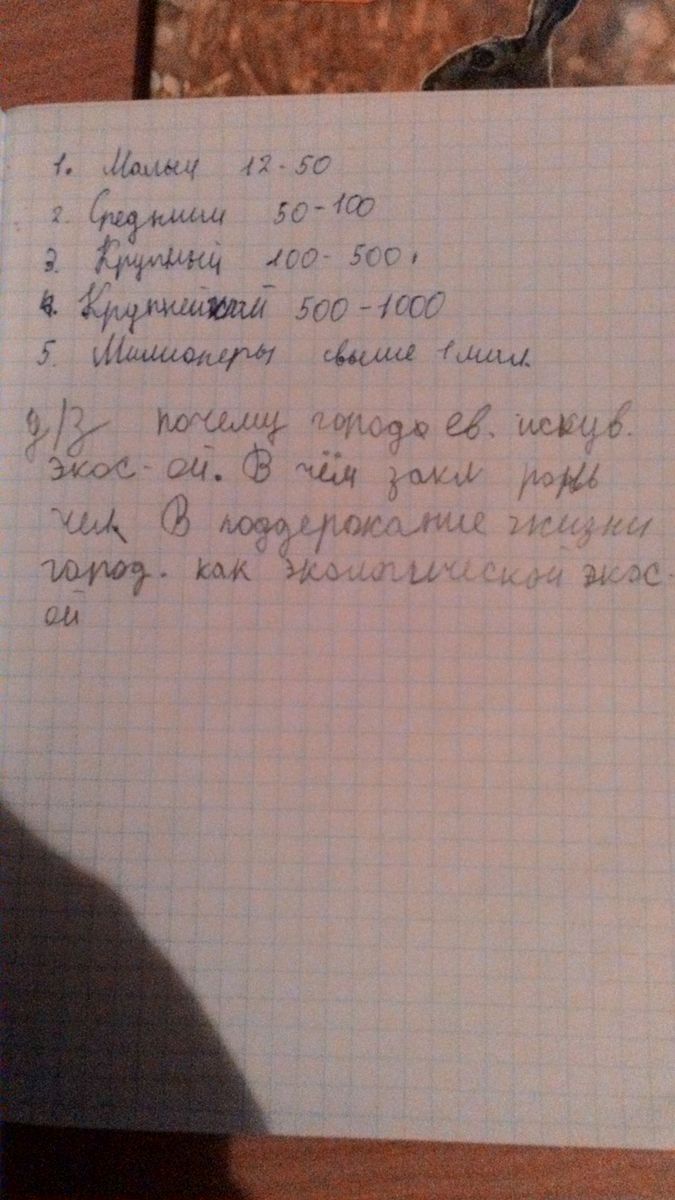 1. Малый 12-50
2. Средний 50-100
3. Крупный 100-500.
4. Крупнейший 500-1000
5. Милионеры свыше 1 мил.
д/з почему города ев. искув.
экос-ой. В чём закл роль
чел В поддержание жизни
город. как экологической экос-
ой